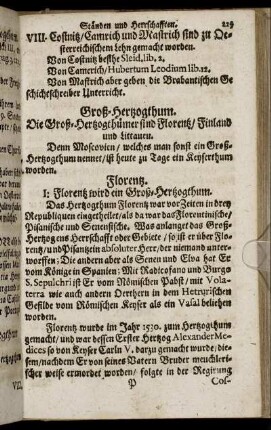 Ständen und Herrschafften. 219
VIII. Costnitz/ Camrich und Mastrich sind zu Oe-
sterreichischem Lehn gemacht worden.
Von Costnitz besihe Sleid. lib. 2.
Von Camerich/ Hubertum Leodium lib. 12.
Von Mastrich aber geben die Brabantischen Ge-
schichtschreiber Unterricht.
Groß-Hertzogthum.
Die Groß-Hertzogthümer sind Florentz/ Finland
und Littauen.
Denn Moscovien/ welches man sonst ein Groß-
Hertzogthum nennet/ ist heute zu Tage ein Keyserthum
worden.
Florentz.
I: Florentz wird ein Groß-Hertzogthum.
Das Hertzogthum Florentz war vor Zeiten in drey
Republiquen eingetheilet/ als da war das Florentinische/
Pisanische und Senensische. Was anlanget das Groß-
Hertzogens Herrschafft oder Gebiete/ so ist er über Flo-
rentz/ und Pisa ein absoluter Herr/ der niemand unter-
worffen: Die andern aber als Senen und Elva hat Er
vom Könige in Spanien: Mit Radicofano und Burgo
S. Sepulchri ist Er vom Römischen Pabst/ mit Vola-
terra wie auch andern Oerthern in dem Hetrurischen
Gefilde vom Römischen Keyser als ein Vasal beliehen
worden.
Florentz wurde im Jahr 1530. zum Hertzogthum
gemacht/ und war dessen Erster Hertzog Alexander Me-
dices so von Keyser Carln V. darzu gemacht wurde/ die-
sem/ nachdem Er von seines Vatern Bruder meuchleri-
scher weise ermordet worden/ folgte in der Regirung
P Cos-